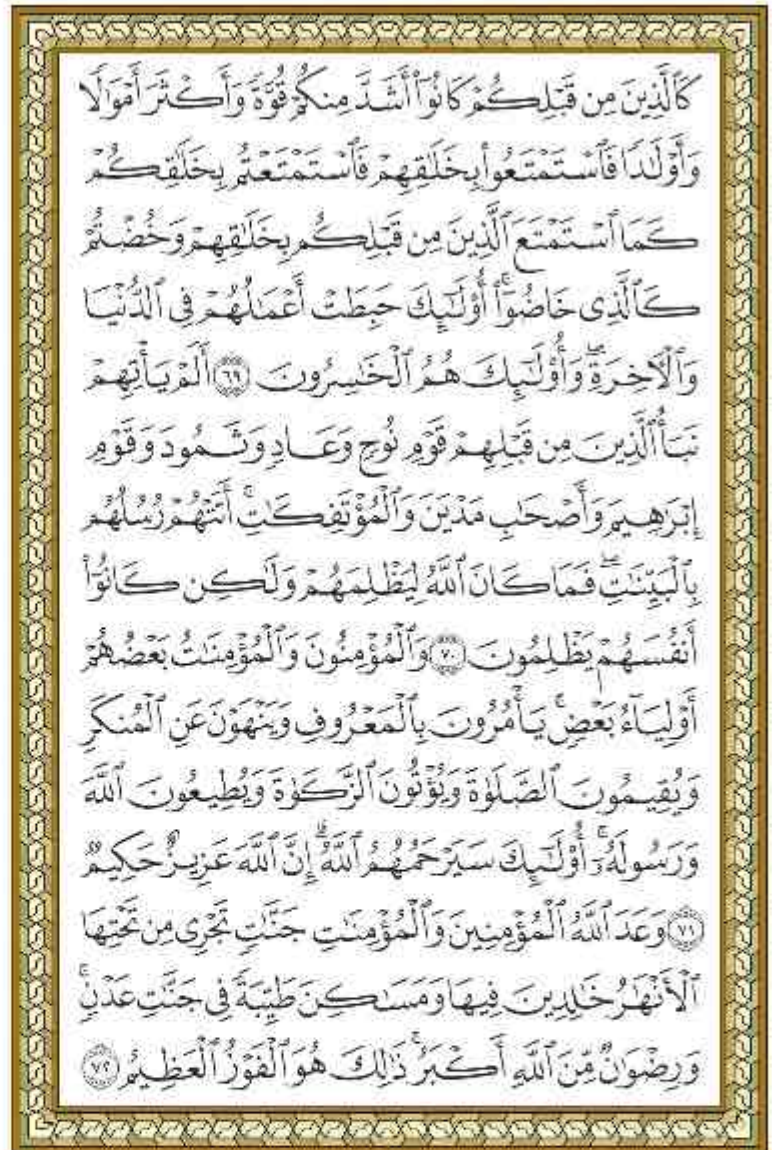 كَٱلَّذِينَ مِن قَبْلِكُمْ كَانُوٓا۟ أَشَدَّ مِنكُمْ قُوَّةً وَأَكْثَرَ أَمْوَٰلًا
وَأَوْلَٰدًا فَٱسْتَمْتَعُوا۟ بِخَلَٰقِهِمْ فَٱسْتَمْتَعْتُم بِخَلَٰقِكُمْ
كَمَا ٱسْتَمْتَعَ ٱلَّذِينَ مِن قَبْلِكُم بِخَلَٰقِهِمْ وَخُضْتُمْ
كَٱلَّذِى خَاضُوٓا۟ ۚ أُو۟لَٰٓئِكَ حَبِطَتْ أَعْمَٰلُهُمْ فِى ٱلدُّنْيَا
وَٱلْءَاخِرَةِ ۖ وَأُو۟لَٰٓئِكَ هُمُ ٱلْخَٰسِرُونَ ۝٦٩ أَلَمْ يَأْتِهِمْ
نَبَأُ ٱلَّذِينَ مِن قَبْلِهِمْ قَوْمِ نُوحٍ وَعَادٍ وَثَمُودَ وَقَوْمِ
إِبْرَٰهِيمَ وَأَصْحَٰبِ مَدْيَنَ وَٱلْمُؤْتَفِكَٰتِ ۚ أَتَتْهُمْ رُسُلُهُم
بِٱلْبَيِّنَٰتِ ۖ فَمَا كَانَ ٱللَّهُ لِيَظْلِمَهُمْ وَلَٰكِن كَانُوٓا۟
أَنفُسَهُمْ يَظْلِمُونَ ۝٧٠ وَٱلْمُؤْمِنُونَ وَٱلْمُؤْمِنَٰتُ بَعْضُهُمْ
أَوْلِيَآءُ بَعْضٍ ۚ يَأْمُرُونَ بِٱلْمَعْرُوفِ وَيَنْهَوْنَ عَنِ ٱلْمُنكَرِ
وَيُقِيمُونَ ٱلصَّلَوٰةَ وَيُؤْتُونَ ٱلزَّكَوٰةَ وَيُطِيعُونَ ٱللَّهَ
وَرَسُولَهُۥٓ ۚ أُو۟لَٰٓئِكَ سَيَرْحَمُهُمُ ٱللَّهُ ۗ إِنَّ ٱللَّهَ عَزِيزٌ حَكِيمٌ
۝٧١ وَعَدَ ٱللَّهُ ٱلْمُؤْمِنِينَ وَٱلْمُؤْمِنَٰتِ جَنَّٰتٍ تَجْرِى مِن تَحْتِهَا
ٱلْأَنْهَٰرُ خَٰلِدِينَ فِيهَا وَمَسَٰكِنَ طَيِّبَةً فِى جَنَّٰتِ عَدْنٍ ۚ
وَرِضْوَٰنٌ مِّنَ ٱللَّهِ أَكْبَرُ ۚ ذَٰلِكَ هُوَ ٱلْفَوْزُ ٱلْعَظِيمُ ۝٧٢